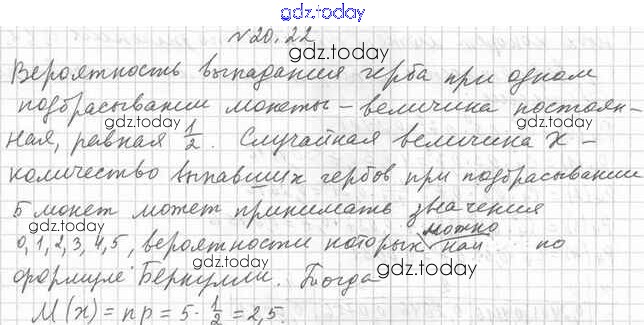 gdz.today
№20.22
gdz.today
Вероятность выпадания герба при одном
подбрасывании монеты – величина постоян-
gdz.today gdz.today
ная, равная 1/2. Случайная величина X –
количество выпавших гербов при подбрасывании
gdz.today
5 монет может принимать значения
gdz.today
можно
0, 1, 2, 3, 4, 5, вероятности которых най по
формуле Бернулли. Тогда
gdz.today
M(x) = np = 5 · 1/2 = 2,5.
gdz.today